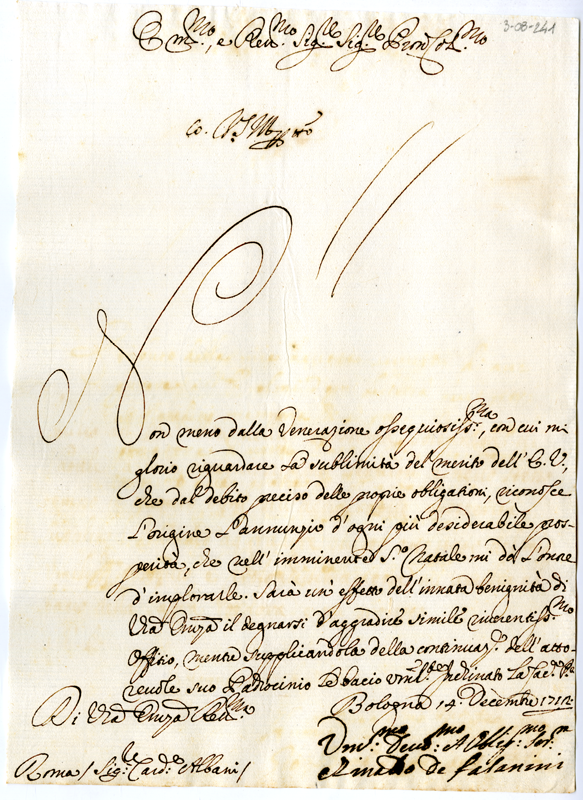 3-08-241
E.mo, e Rev.mo Sig.r Sig.r Pron Col.mo
Non meno dalla Venerazione ossequiosiss.ma, con cui mi
glorio riguardare la sublimità del merito dell'E.V.,
che dal debito preciso delle proprie obligationi, riconosce
l'origine l'annunzio d'ogni più desiderabile pros-
perità, che nell'imminente S.o Natale mi dò l'onore
d'implorarle. Sarà un'effetto dell'innata benignità di
Vra Emza il degnarsi d'aggradire simile riverentiss.mo
Offitio, mentre supplicandola della continuaz.e dell'auto-
revole suo Padrocinio le bacio inclinato la Sac.
Bologna 14. Decembre 1712
Di Vra Emza Rev.ma
Um.mo Dev.mo et Obblig.mo Ser.re
Roma / Sig.r Card.e Albani /
de